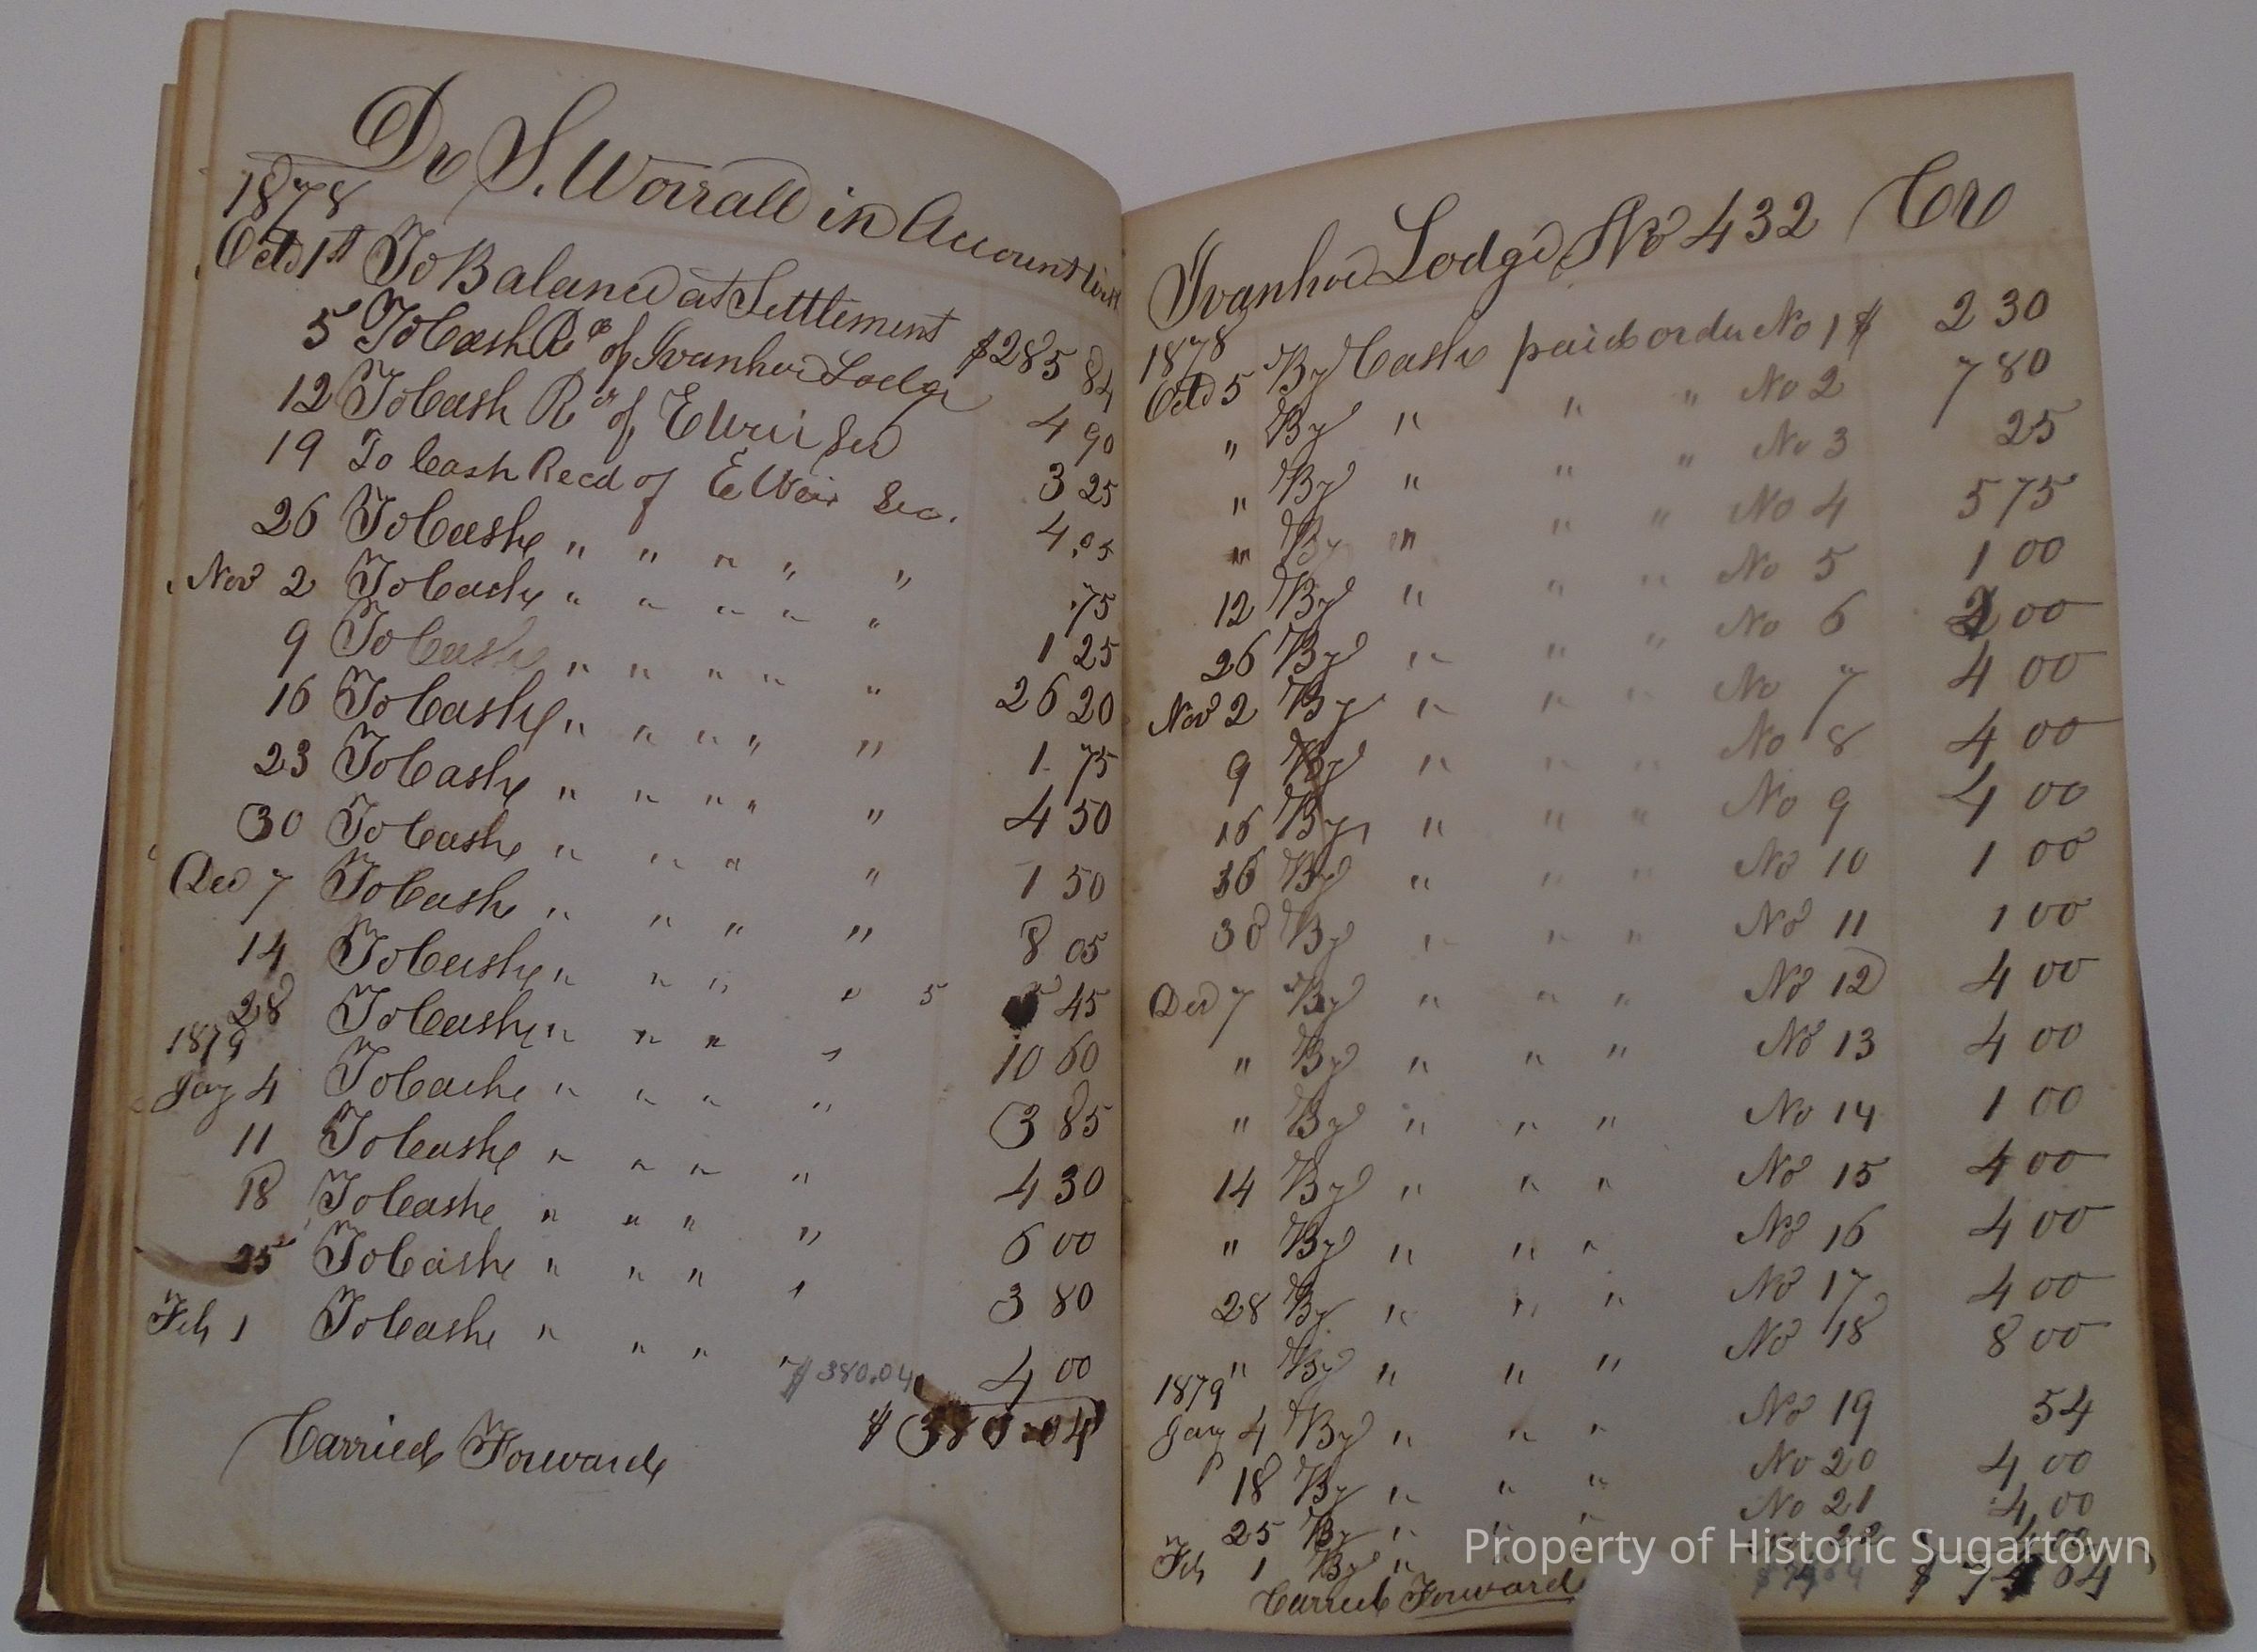 Dr S. Worrall in Account with
1878
Oct 1st To Balance at Settlement $285 84
5 To Cash Rd of Ivanhoe Lodge 4 90
12 To Cash Rd of E Weir Sec 3 25
19 To Cash Recd of E Weir Sec. 4.05
26 To Cash " " " " " .75
Nov 2 To Cash " " " " " 1 25
9 To Cash " " " " " 26 20
16 To Cash " " " " " 1.75
23 To Cash " " " " " 4 50
30 To Cash " " " " 1 50
Dec 7 To Cash " " " " 8 05
14 To Cash " " " " 5 45
28 To Cash " " " " 10 60
1879
Jay 4 To Cash " " " " 3 85
11 To Cash " " " " 4 30
18 To Cash " " " " 6 00
25 To Cash " " " " 3 80
Feb 1 To Cash " " " " 4 00
$380.04
Carried Forward $380.04
Ivanhoe Lodge No 432 Cr
1878
Oct 5 By Cash paid order No 1 $ 2 30
" By " " " No 2 7 80
" By " " " No 3 25
" By " " " No 4 5 75
12 By " " " No 5 1 00
26 By " " " No 6 00
Nov 2 By " " " No 7 4 00
9 By " " " No 8 4 00
16 By " " " No 9 4 00
16 By " " " No 10 1 00
30 By " " " No 11 1 00
Dec 7 By " " " No 12 4 00
" By " " " No 13 4 00
" By " " " No 14 1 00
14 By " " " No 15 4 00
" By " " " No 16 4 00
28 By " " " No 17 4 00
" By " " " No 18 8 00
1879
Jay 4 By " " " No 19 54
18 By " " " No 20 4 00
25 By " " " No 21 4,00
Feb 1 By " " No 22 4 00
Carried Forward $ 7 64
Property of Historic Sugartown